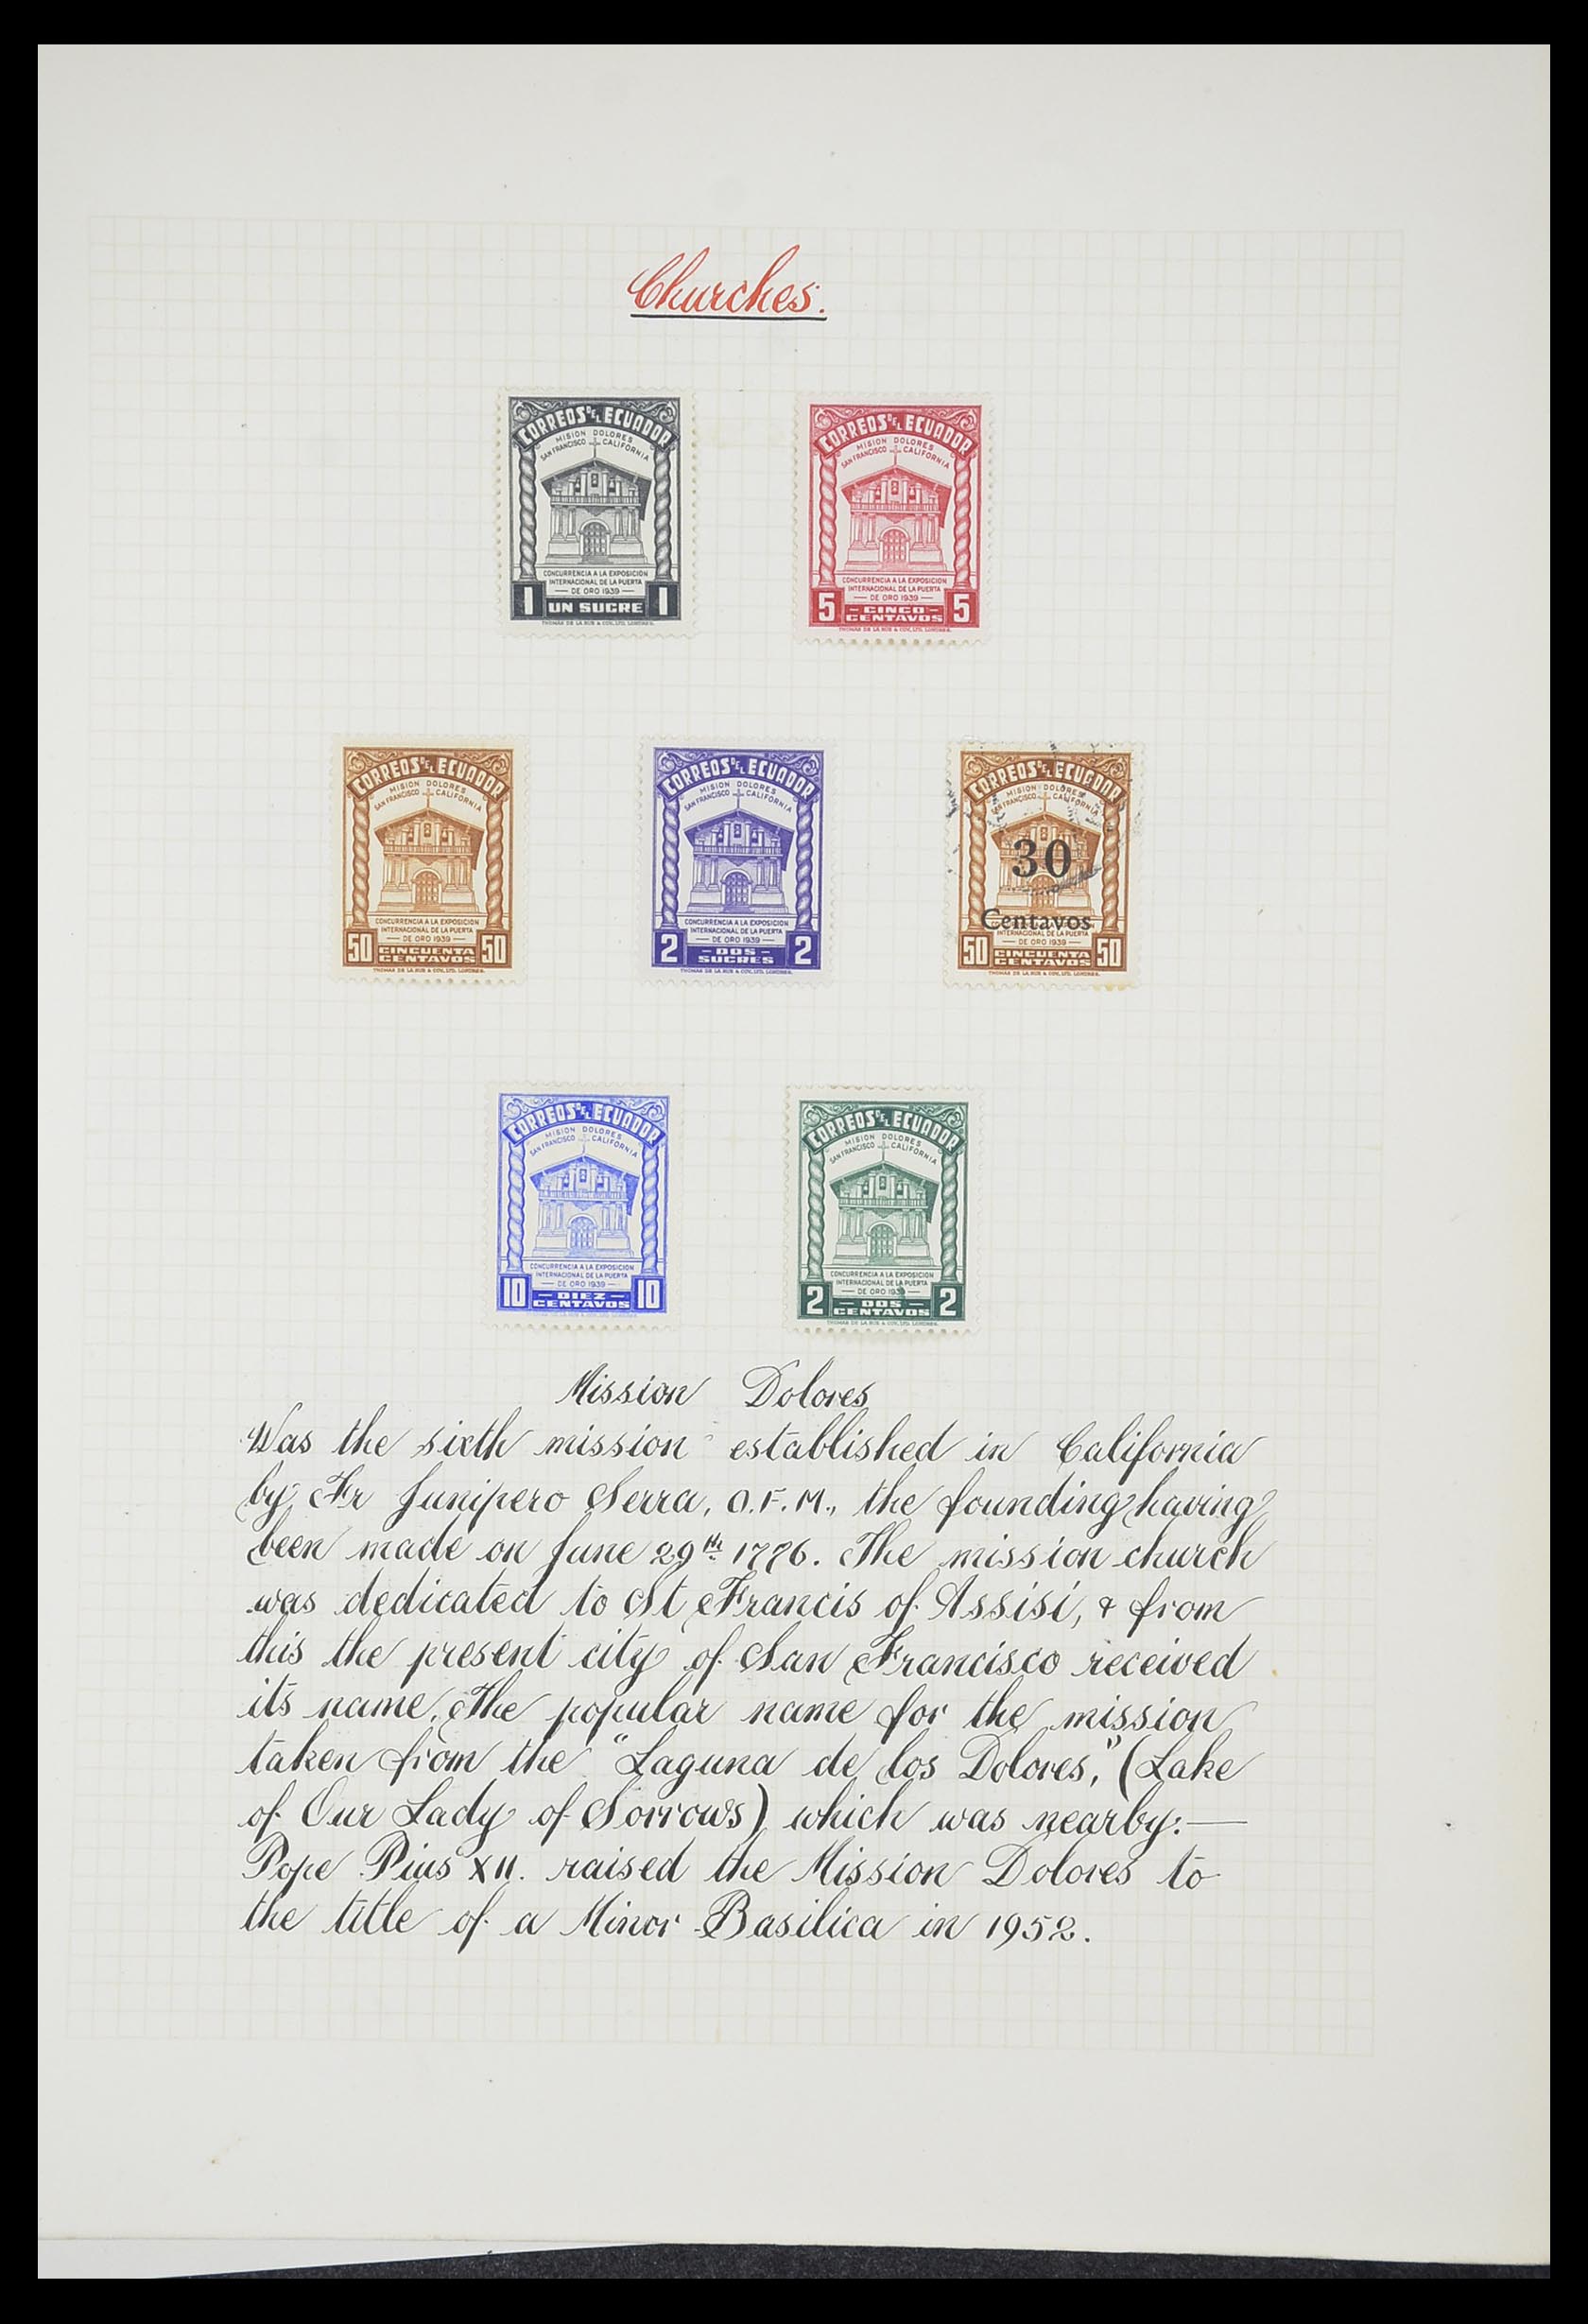 Churches.
CORREOS DEL ECUADOR
MISION DOLORES
SAN FRANCISCO CALIFORNIA
CONCURRENCIA A LA EXPOSICION
INTERNACIONAL DE LA PUERTA
DE ORO 1939
1 UN SUCRE 1
THOMAS DE LA RUE & COY, LTD. LONDRES.
CORREOS DEL ECUADOR
MISION DOLORES
SAN FRANCISCO CALIFORNIA
CONCURRENCIA A LA EXPOSICION
INTERNACIONAL DE LA PUERTA
DE ORO 1939
5 CINCO CENTAVOS 5
THOMAS DE LA RUE & COY, LTD. LONDRES.
CORREOS DEL ECUADOR
MISION DOLORES
SAN FRANCISCO CALIFORNIA
CONCURRENCIA A LA EXPOSICION
INTERNACIONAL DE LA PUERTA
DE ORO 1939
50 CINCUENTA CENTAVOS 50
THOMAS DE LA RUE & COY, LTD. LONDRES.
CORREOS DEL ECUADOR
MISION DOLORES
SAN FRANCISCO CALIFORNIA
CONCURRENCIA A LA EXPOSICION
INTERNACIONAL DE LA PUERTA
DE ORO 1939
2 DOS SUCRES 2
THOMAS DE LA RUE & COY, LTD. LONDRES.
CORREOS DEL ECUADOR
MISION DOLORES
SAN FRANCISCO CALIFORNIA
30
Centavos
INTERNACIONAL DE LA PUERTA
DE ORO 1939
50 CINCUENTA CENTAVOS 50
THOMAS DE LA RUE & COY, LTD. LONDRES.
CORREOS DEL ECUADOR
MISION DOLORES
SAN FRANCISCO CALIFORNIA
CONCURRENCIA A LA EXPOSICION
INTERNACIONAL DE LA PUERTA
DE ORO 1939
10 DIEZ CENTAVOS 10
THOMAS DE LA RUE & COY, LTD. LONDRES.
CORREOS DEL ECUADOR
MISION DOLORES
SAN FRANCISCO CALIFORNIA
CONCURRENCIA A LA EXPOSICION
INTERNACIONAL DE LA PUERTA
DE ORO 1939
2 DOS CENTAVOS 2
THOMAS DE LA RUE & COY, LTD. LONDRES.
Mission Dolores
Was the sixth mission established in California
by Fr Junipero Serra, O.F.M., the founding having
been made on June 29th 1776. The mission church
was dedicated to St Francis of Assisi, & from
this the present city of San Francisco received
its name. The popular name for the mission
taken from the "Laguna de los Dolores," (Lake
of Our Lady of Sorrows) which was nearby:—
Pope Pius XII. raised the Mission Dolores to
the title of a Minor Basilica in 1952.